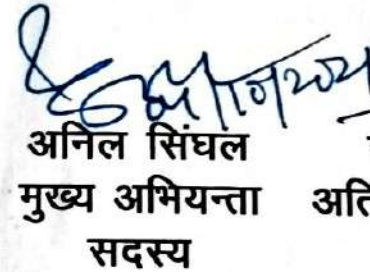 अनिल सिंघल
मुख्य अभियन्ता अति
सदस्य